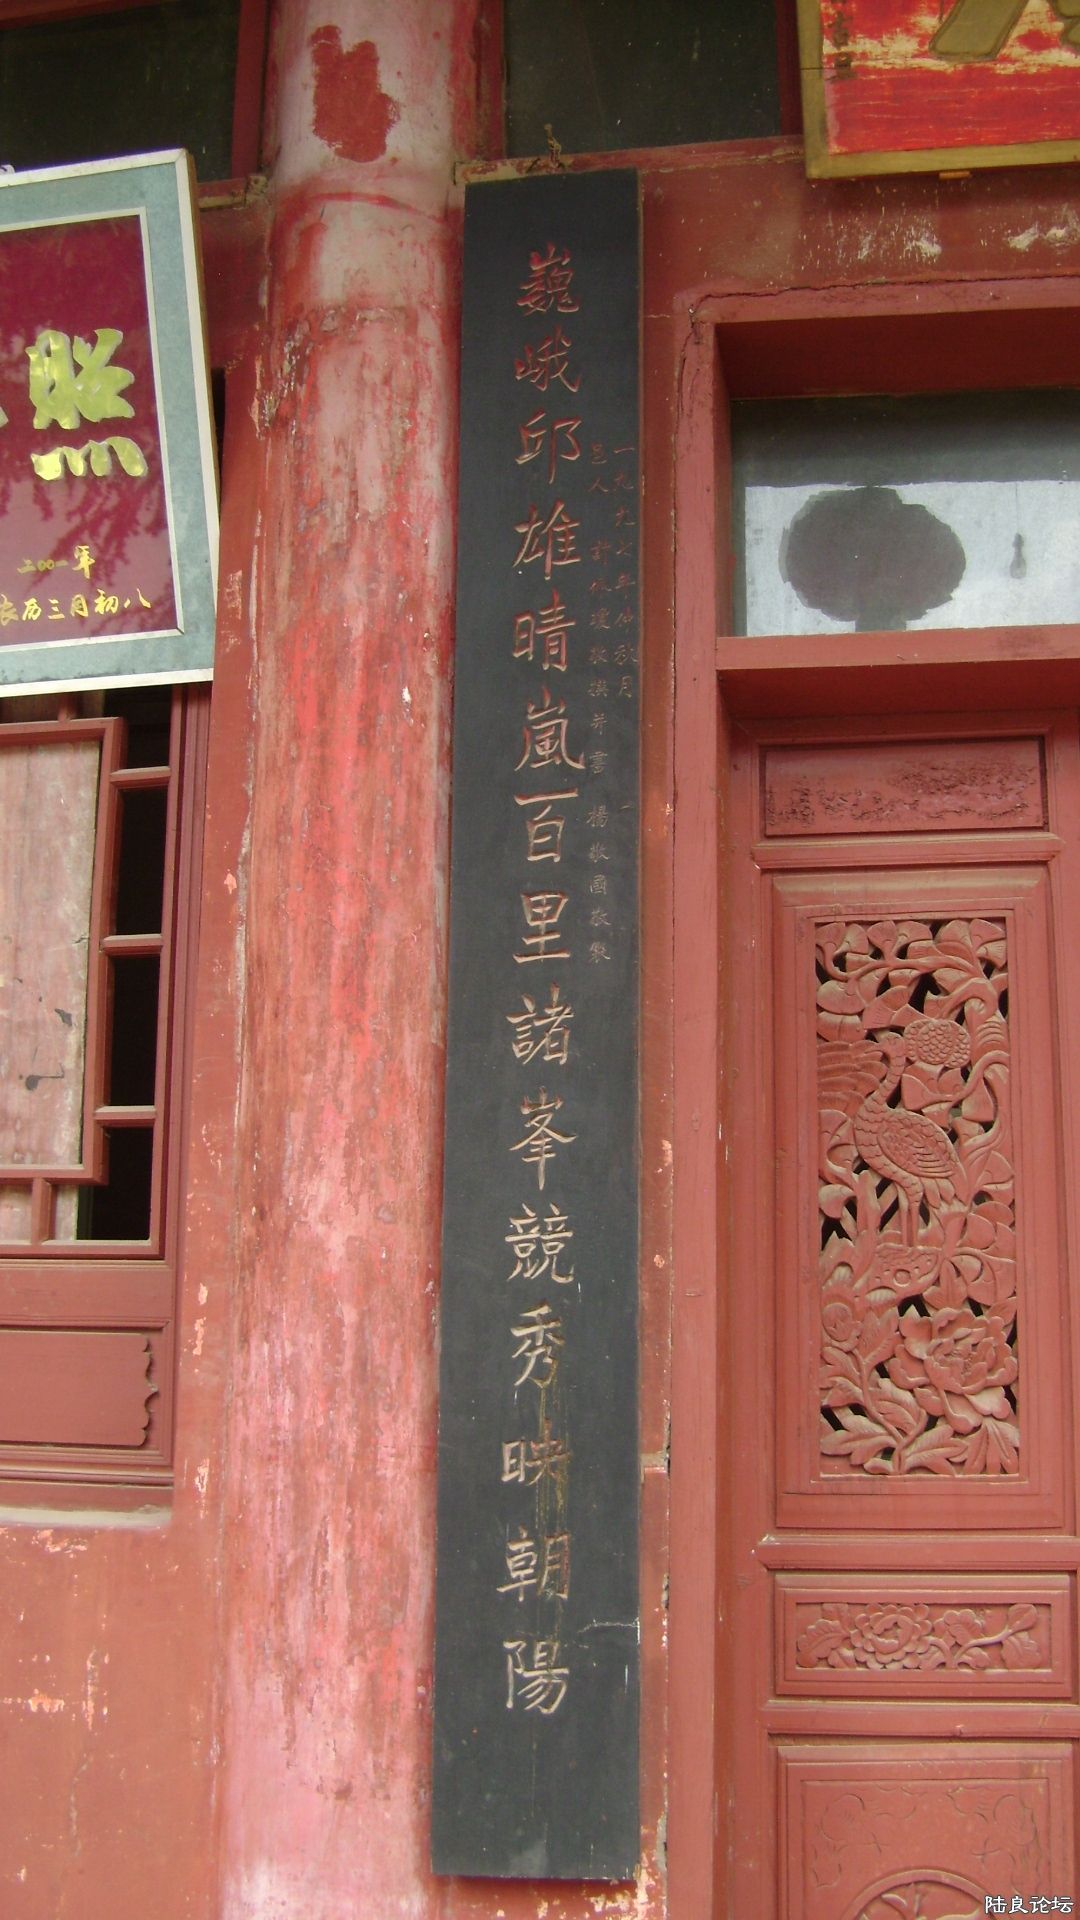 巍峨邱雄晴嵐百里諸峯競秀映朝陽
一九九七年仲秋月
邑人 許保瓊敬撰并書 楊敬國敬製
照
二〇〇一年
农历三月初八
陆良论坛